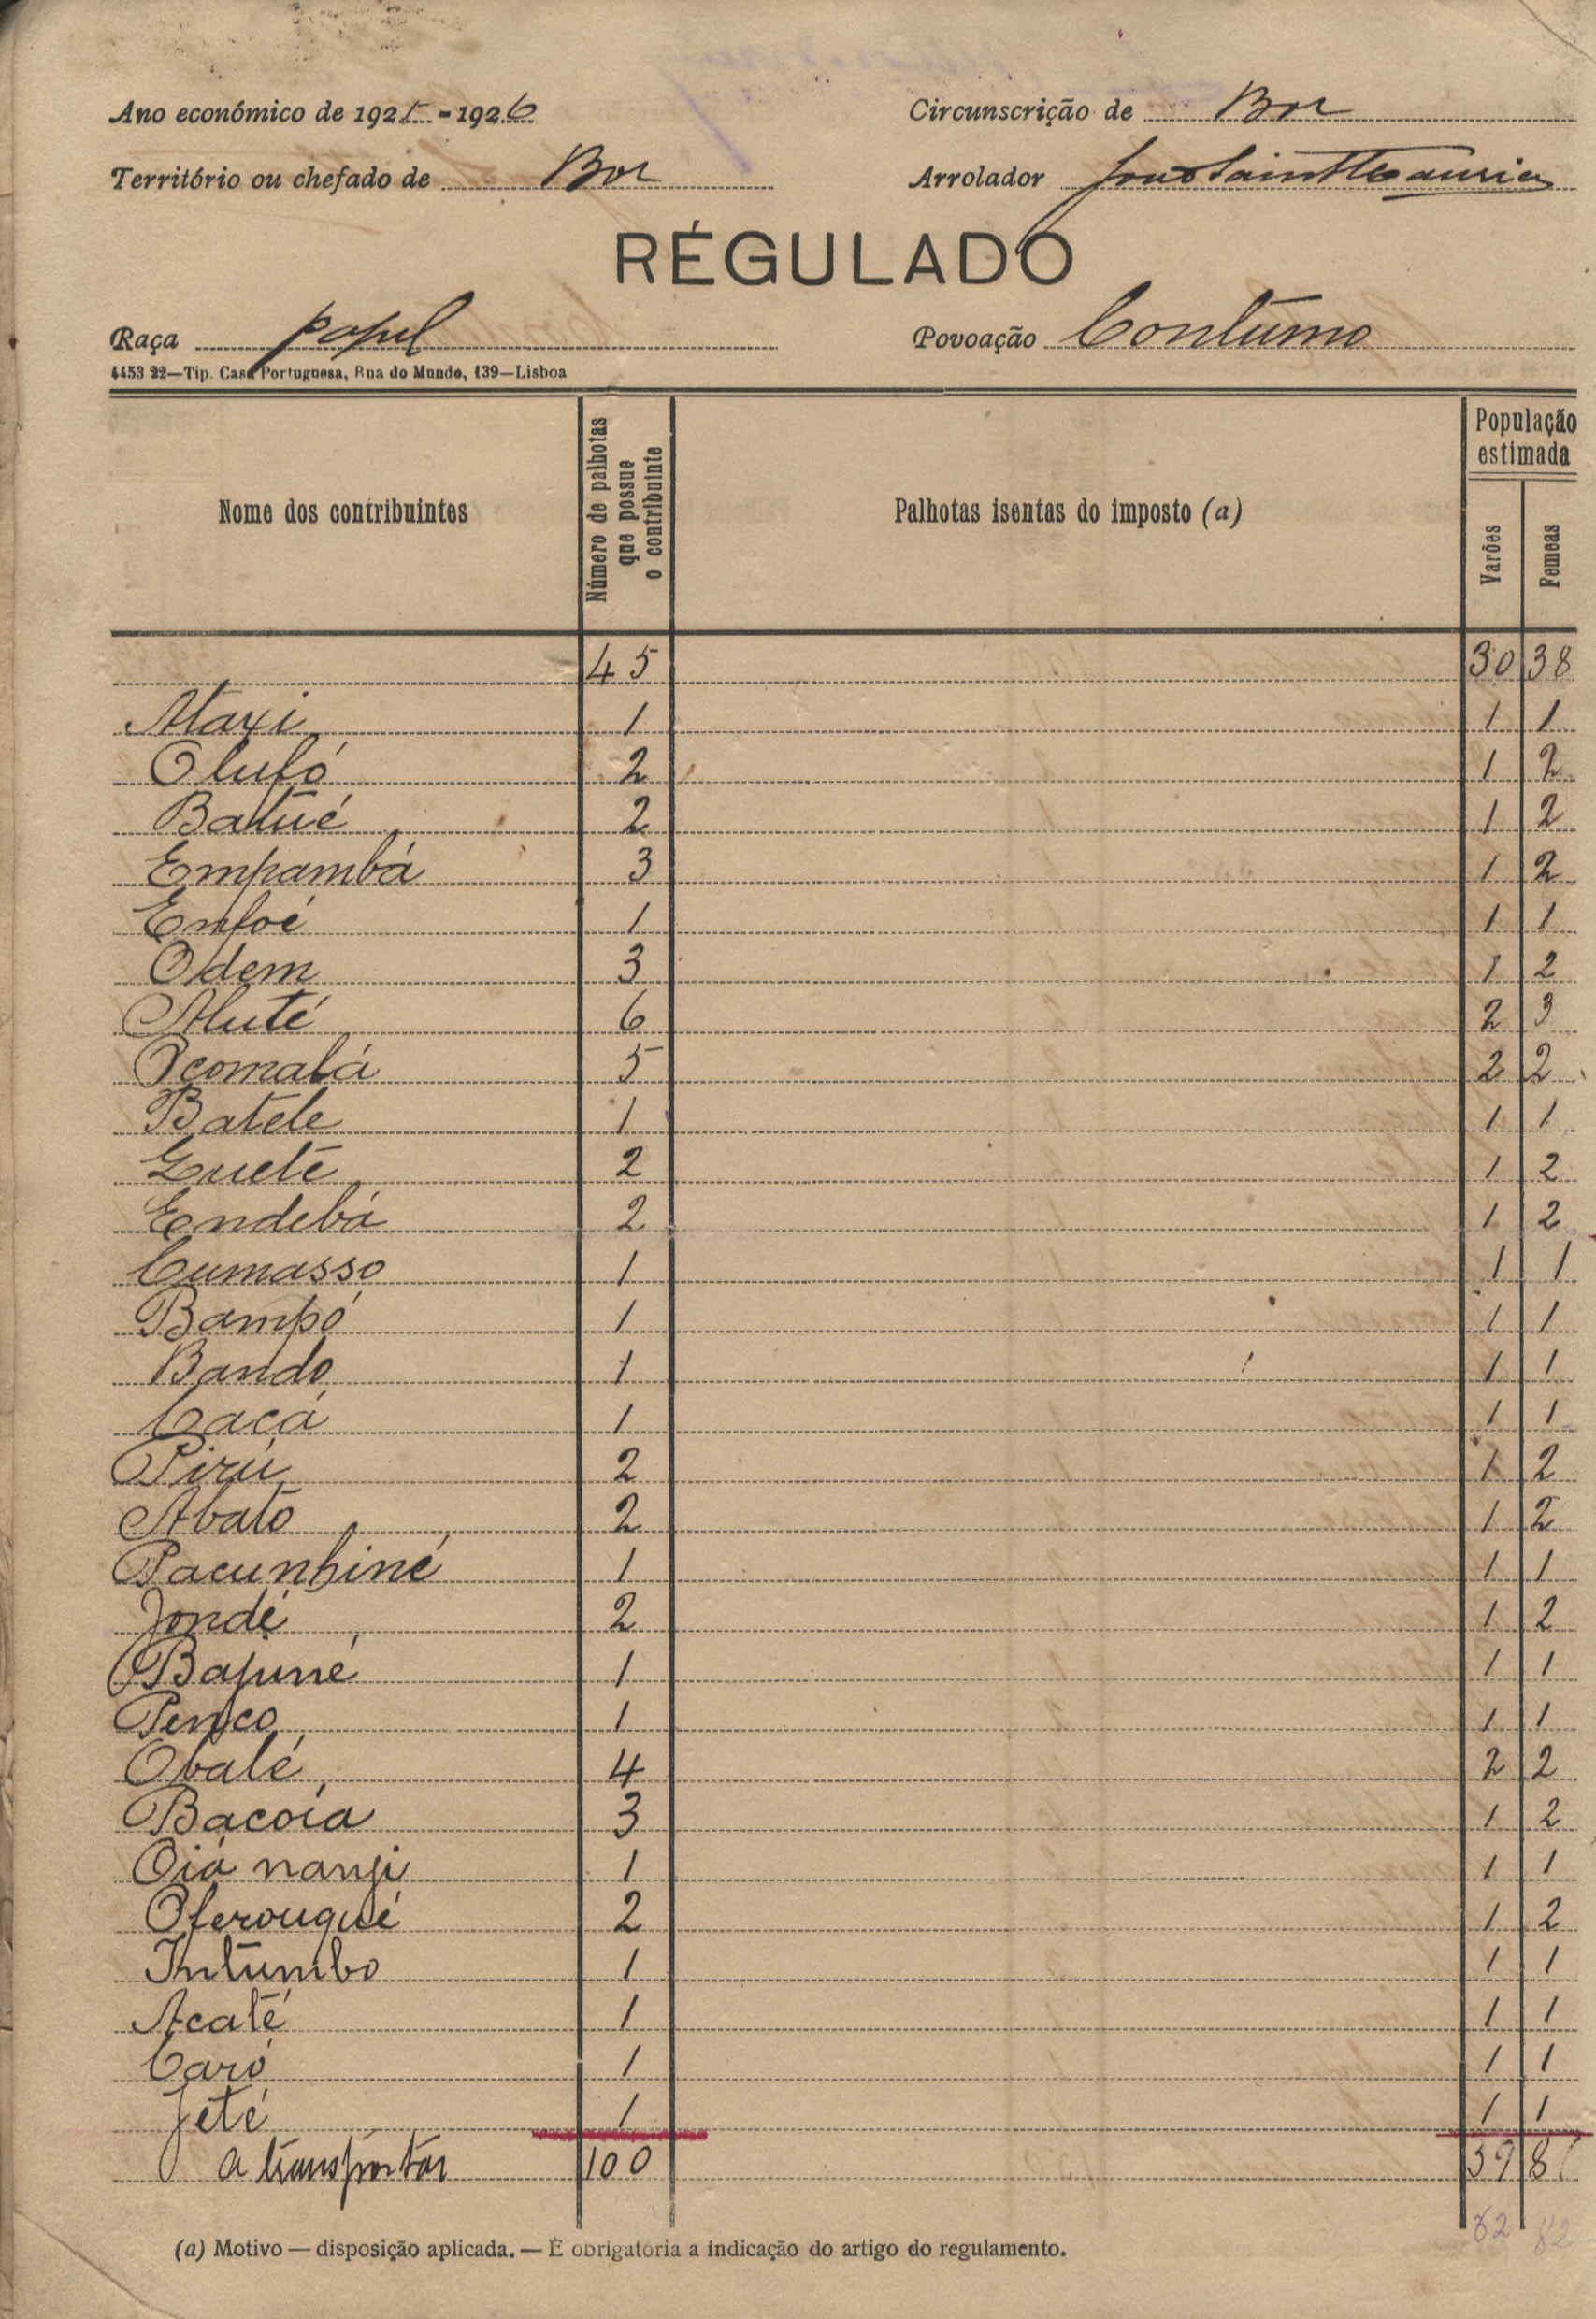 Ano económico de 1925-1926 Circunscrição de Bor
Território ou chefado de Bor Arrolador
RÉGULADO
Raça papel Povoação Contumo
4453 22—Tip. Casa Portuguesa, Rua do Mundo, 139—Lisboa
Nome dos contribuintes Número de palhotas que possue o contribuinte Palhotas isentas do imposto (a) População estimada Varões Femeas
45 30 38
Ataxi 1 1 1
Olufó 2 1 2
Batué 2 1 2
Empambá 3 1 2
Enfoé 1 1 1
Odem 3 1 2
Aluté 6 2 3
5 2 2
Batele 1 1 1
Gueté 2 1 2
Endebá 2 1 2
Cumasso 1 1 1
Bampó 1 1 1
Bando 1 1 1
Cacá 1 1 1
Pirú 2 1 2
Abató 2 1 2
Pacunhiné 1 1 1
Jondé 2 1 2
Bajuné 1 1 1
Penco 1 1 1
Obalé 4 2 2
Bacoia 3 1 2
Oiá nanji 1 1 1
Oferouqué 2 1 2
Intumbo 1 1 1
Acaté 1 1 1
Caró 1 1 1
Jeté 1 1 1
a transportar 100
62 82
(a) Motivo — disposição aplicada. — É obrigatória a indicação do artigo do regulamento.